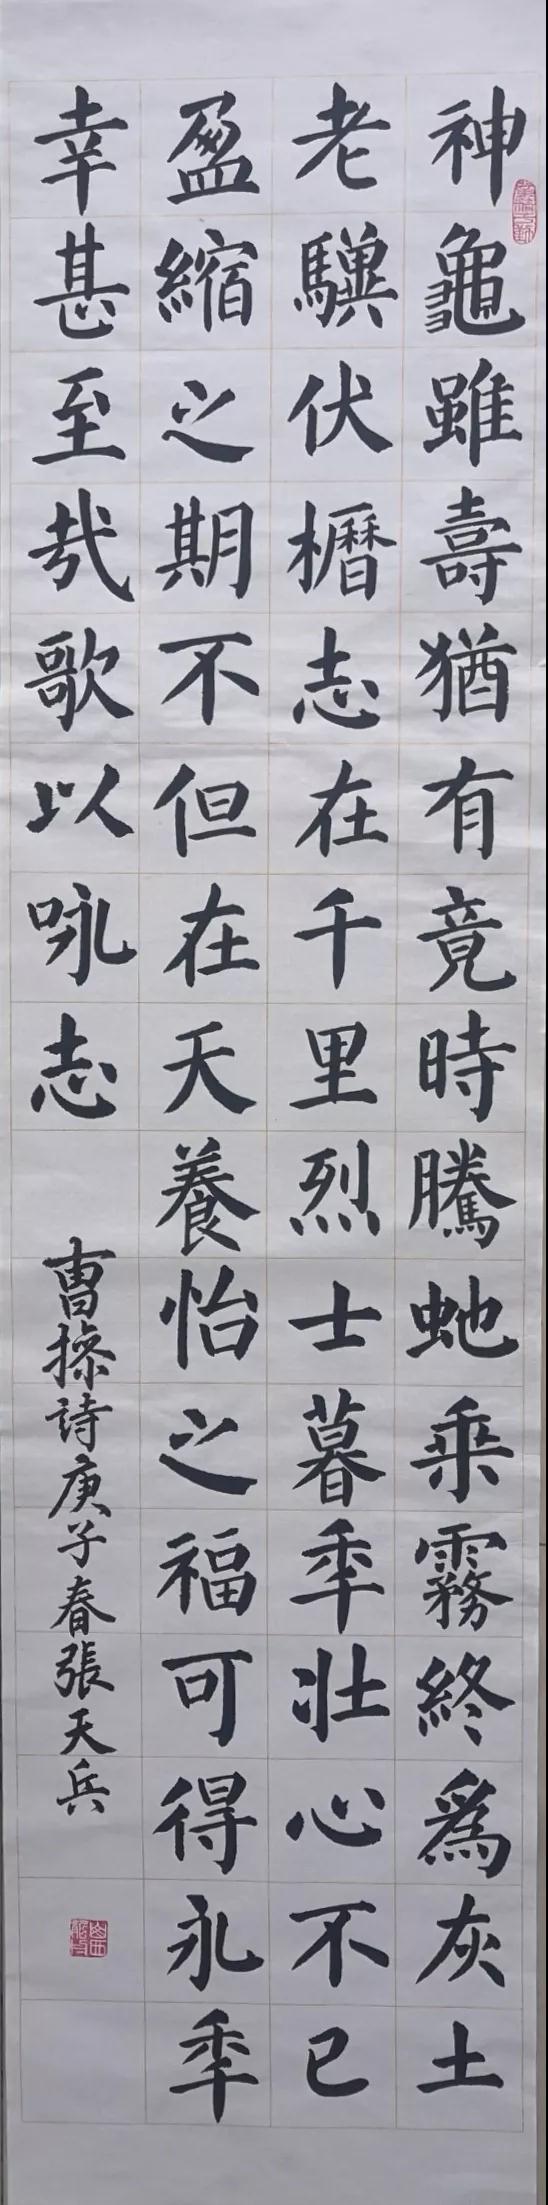 神龜雖壽猶有竟時騰虵乗霧終爲灰土
老驥伏櫪志在千里烈士暮年壯心不已
盈縮之期不但在天養怡之福可得永年
幸甚至哉歌以咏志
曹操詩庚子春張天兵